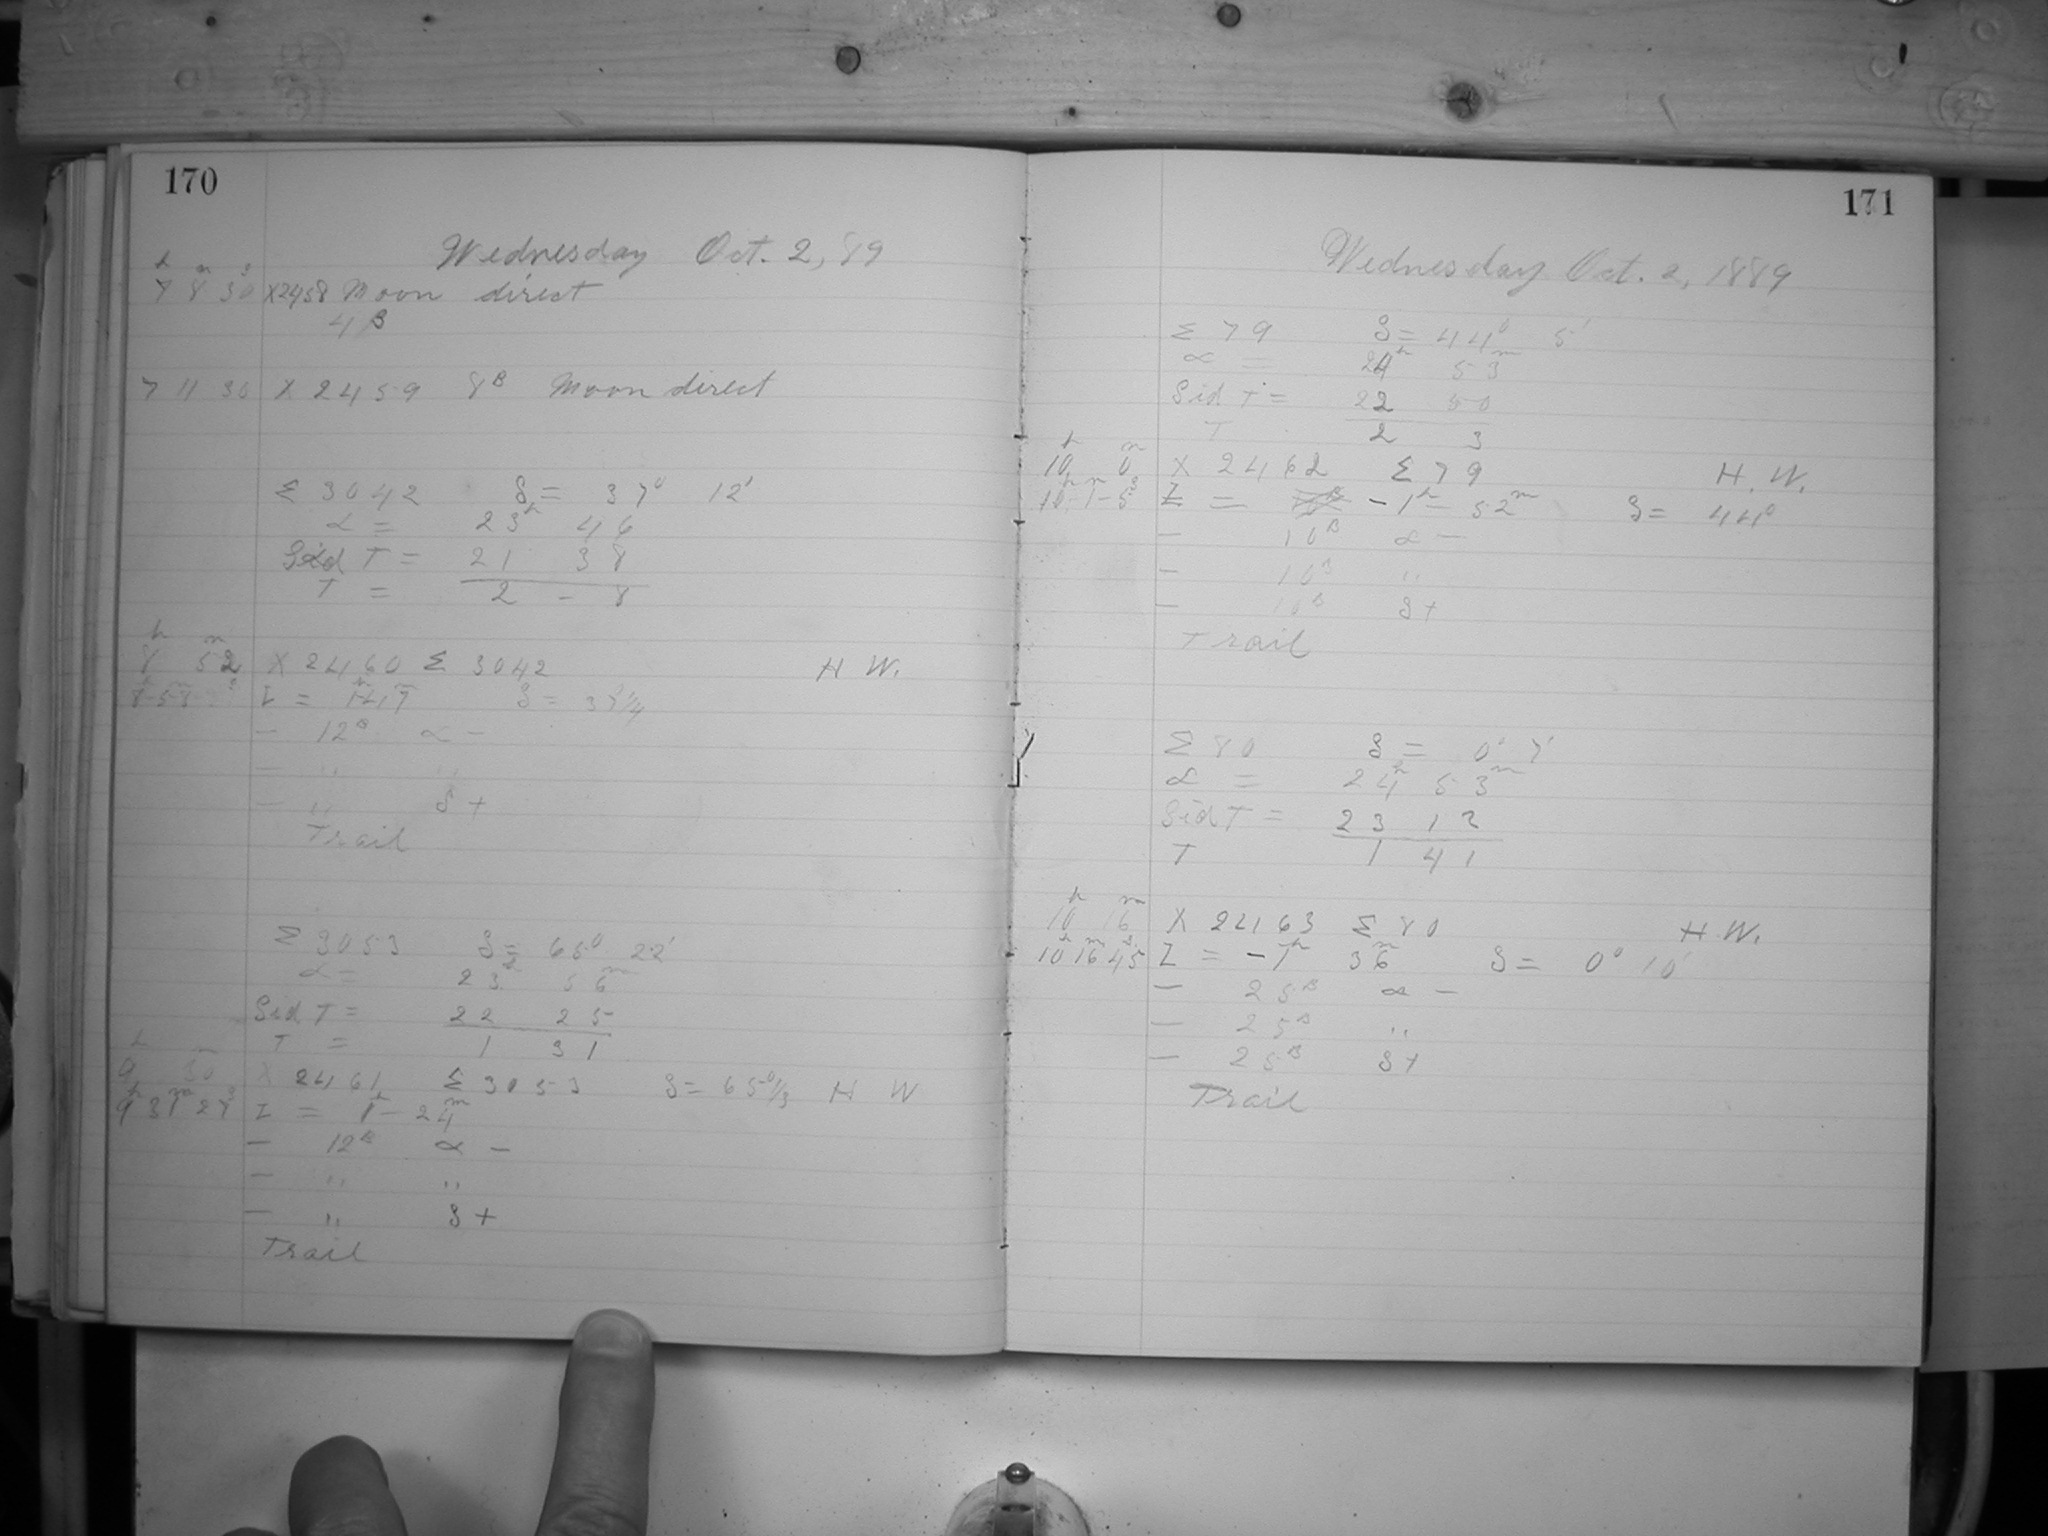 170
Wednesday Oct. 2, 89
h m s
7 8 30 X2458 Moon direct
4 B
7 11 30 X 2459 8B Moon direct
Σ 3042 δ = 37° 12'
α = 23h 46
Sid T = 21 38
T = 2 - 8
h m
8 52 X 2460 Σ 3042 H W.
I = δ = 37 1/4
- 12B α -
- " "
- " δ +
Trail
Σ 3053 δ = 65° 22'
α = 23h 56m
Sid T = 22 25
T = 1 31
h m
9 30 X 2461 Σ 3053 δ = 65° 1/3 H W
9h 31m I = 1h - 24m
- 12B α -
- " "
- " δ +
Trail
171
Wednesday Oct. 2, 1889
Σ 79 δ = 44° 5'
α = 24h 53m
Sid T = 22 50
T 2 3
h m
10 0 X 2462 Σ 79 H. W.
10h-1m-5s I = -1h - 52m δ = 44°
- 10B α -
- 10B "
- 10B δ +
Trail
Σ 80 δ = 0° 7'
α = 24h 53m
Sid T = 23 12
T 1 41
h m
10 16 X 2463 Σ 80 H. W.
10h 16m 45s I = -1h 36m δ = 0° 10'
- 25B α -
- 25B "
- 25B δ +
Trail